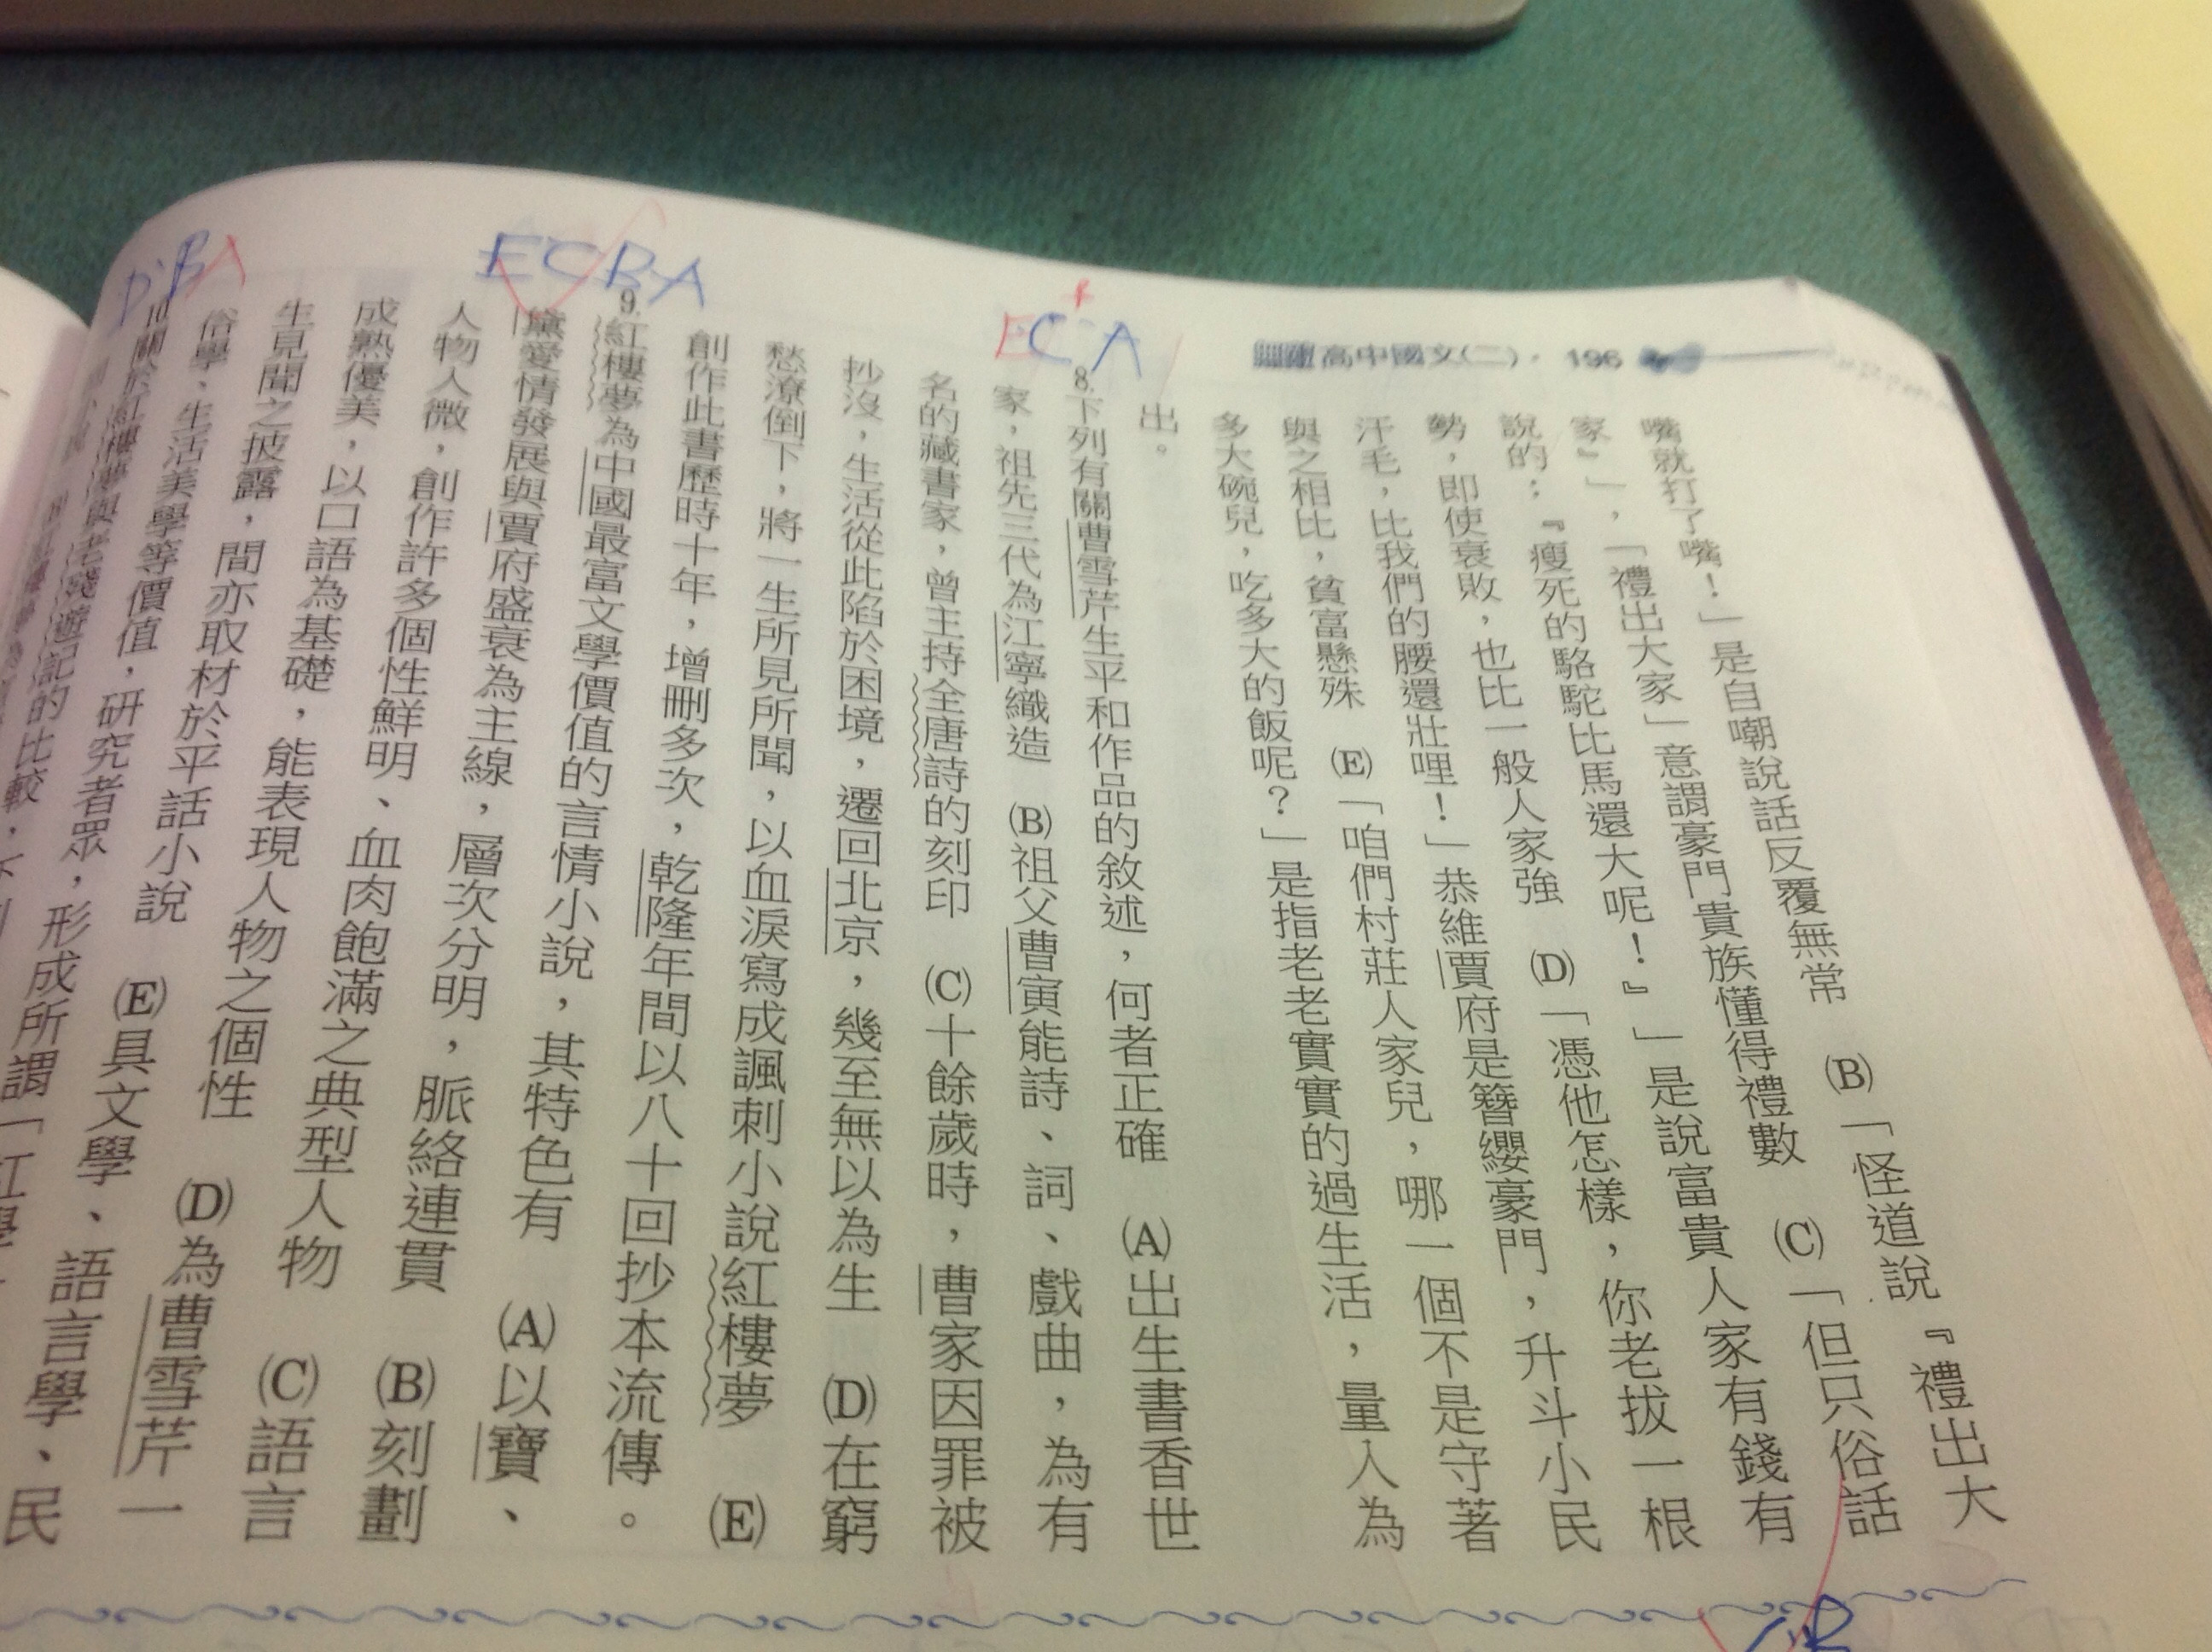 高中國文(二)・196
嘴就打了嘴！」是自嘲說話反覆無常　(B)「怪道說『禮出大
家』」，「禮出大家」意謂豪門貴族懂得禮數　(C)「但只俗話
說的：『瘦死的駱駝比馬還大呢！』」是說富貴人家有錢有
勢，即使衰敗，也比一般人家強　(D)「憑他怎樣，你老拔一根
汗毛，比我們的腰還壯哩！」恭維賈府是簪纓豪門，升斗小民
與之相比，貧富懸殊　(E)「咱們村莊人家兒，哪一個不是守著
多大碗兒，吃多大的飯呢？」是指老老實實的過生活，量入為
出。
ECA
8.下列有關曹雪芹生平和作品的敘述，何者正確　(A)出生書香世
家，祖先三代為江寧織造　(B)祖父曹寅能詩、詞、戲曲，為有
名的藏書家，曾主持全唐詩的刻印　(C)十餘歲時，曹家因罪被
抄沒，生活從此陷於困境，遷回北京，幾至無以為生　(D)在窮
愁潦倒下，將一生所見所聞，以血淚寫成諷刺小說紅樓夢　(E)
創作此書歷時十年，增刪多次，乾隆年間以八十回抄本流傳。
ECBA
9.紅樓夢為中國最富文學價值的言情小說，其特色有　(A)以寶、
黛愛情發展與賈府盛衰為主線，層次分明，脈絡連貫　(B)刻劃
人物入微，創作許多個性鮮明、血肉飽滿之典型人物　(C)語言
成熟優美，以口語為基礎，能表現人物之個性　(D)為曹雪芹一
生見聞之披露，間亦取材於平話小說　(E)具文學、語言學、民
俗學、生活美學等價值，研究者眾，形成所謂「紅學」
DBA
10.關於紅樓夢與老殘遊記的比較，